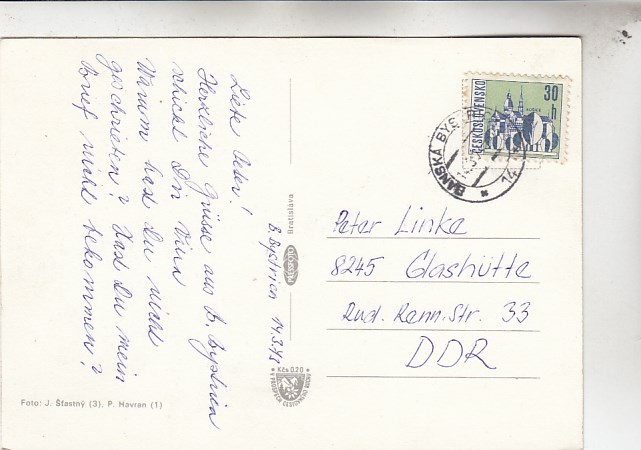 Liebe Peter!
Herzliche Grüsse aus B. Bystrica
schickt Dir Vina
Warum hast Du nicht
geschrieben? Hast Du mein
Brief nicht bekommen?
B. Bystrica 14.3.
Bratislava
PRESSFOTO
Kčs 0,20
V PROSPECH CESTOVNÉHO RUCHU
Foto: J. Šťastný (3), P. Havran (1)
ČESKOSLOVENSKO
30
h
BANSKÁ BYS
14
Peter Linke
8245 Glashütte
Rud. Renn. Str. 33
DDR